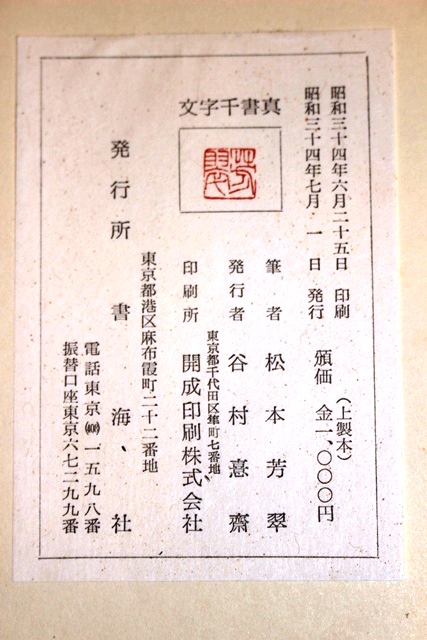 昭和三十四年六月二十五日 印刷
昭和三十四年七月 一日 発行
頒価 金一、〇〇〇円
(上製本)
真書千字文
芳翠
筆者 松本芳翠
発行者 谷村憙齋
東京都千代田区隼町七番地
印刷所 開成印刷株式会社
東京都港区麻布霞町二十二番地
発行所 書海社
電話東京(408)一五九八番
振替口座東京六七二九九番